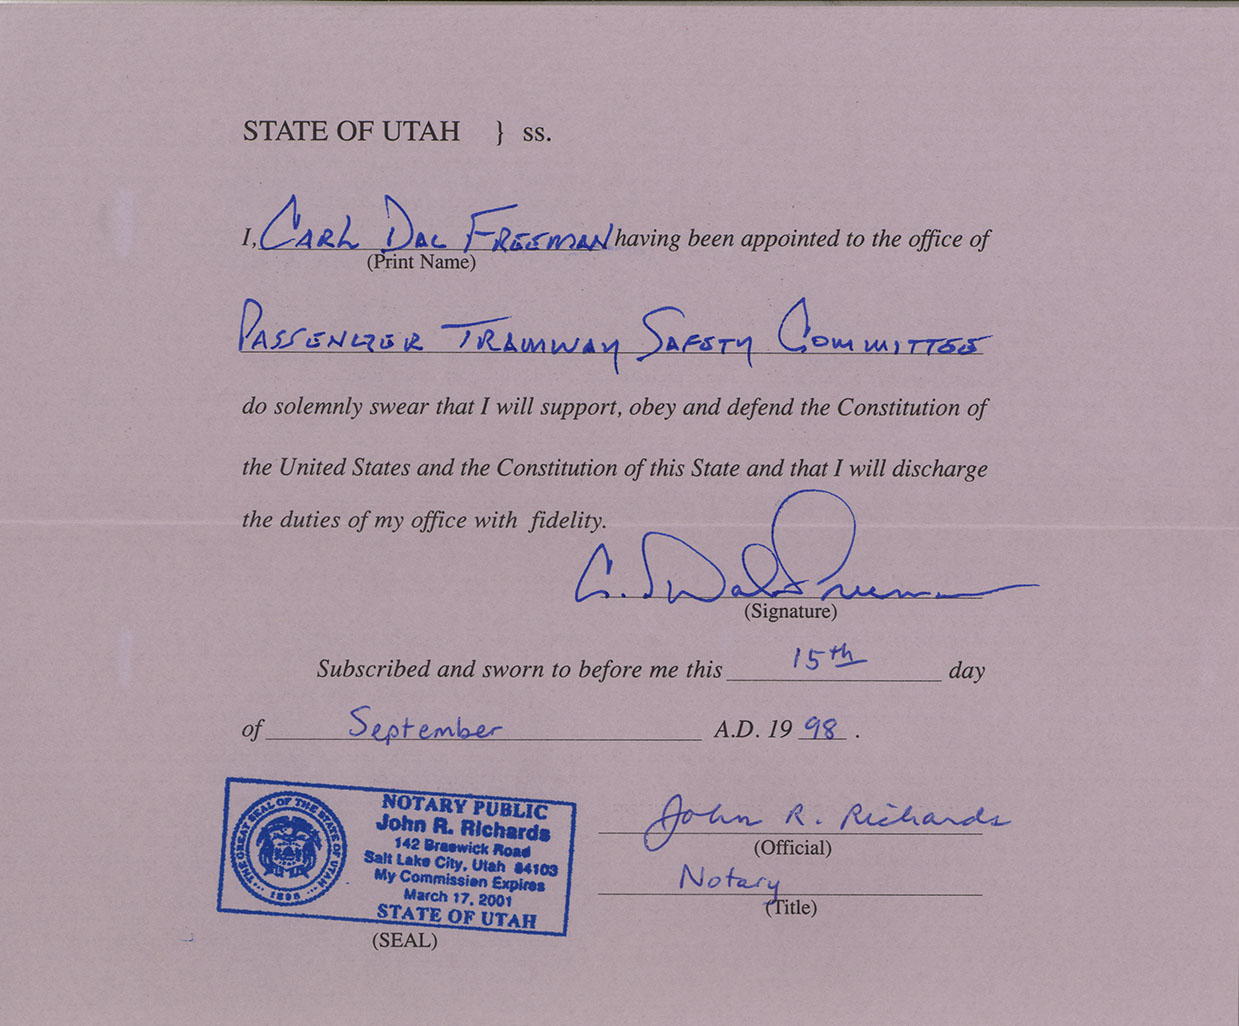 STATE OF UTAH } ss.
I, CARL DAL FREEMAN having been appointed to the office of
(Print Name)
PASSENGER TRAMWAY SAFETY COMMITTEE
do solemnly swear that I will support, obey and defend the Constitution of
the United States and the Constitution of this State and that I will discharge
the duties of my office with fidelity.
C. Dal Freeman
(Signature)
Subscribed and sworn to before me this 15th day
of September A.D. 19 98 .
John R. Richards
(Official)
Notary
(Title)
THE GREAT SEAL OF THE STATE OF UTAH
1896
NOTARY PUBLIC
John R. Richards
142 Braewick Road
Salt Lake City, Utah 84103
My Commission Expires
March 17, 2001
STATE OF UTAH
(SEAL)